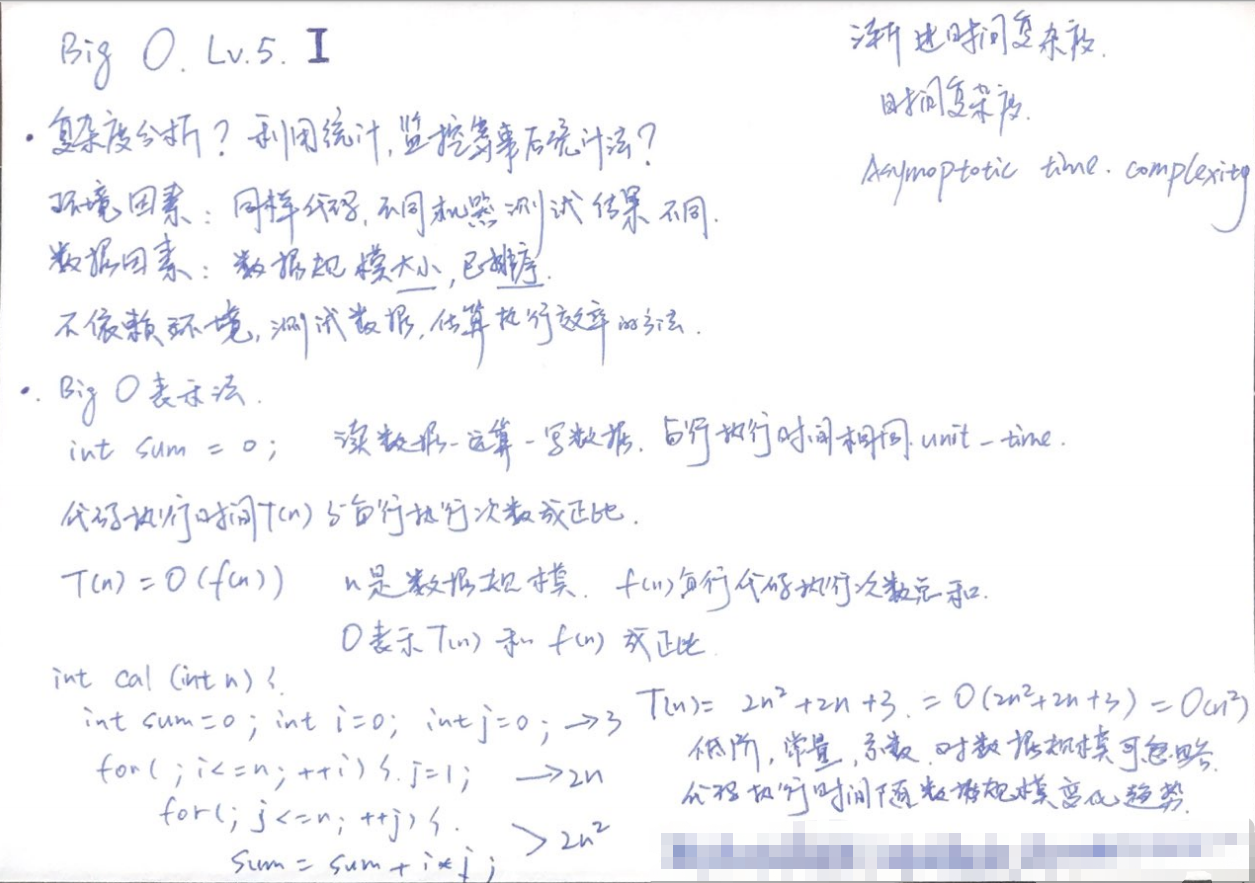 Big O. Lv.5. I
渐进时间复杂度.
时间复杂度.
Asymoptotic time. complexity
• 复杂度分析? 利用统计,监控等事后统计法?
环境因素: 同样代码,不同机器测试结果不同.
数据因素: 数据规模大小,已排序.
不依赖环境,测试数据,估算执行效率的方法.
• Big O 表示法.
int sum = 0; 读数据-运算-写数据. 每行执行时间相同. unit_time.
代码执行时间T(n)与每行执行次数成正比.
T(n) = O(f(n)) n是数据规模. f(n)每行代码执行次数总和.
O表示T(n)和f(n)成正比.
int cal (int n) {
int sum=0; int i=0; int j=0; →3
for(; i<=n; ++i) { j=1; →2n
for(; j<=n; ++j) {
sum = sum + i*j; >2n²
T(n)= 2n²+2n+3. = O(2n²+2n+3) = O(n²)
低阶,常量,系数.对数据规模可忽略.
代码执行时间随数据规模变化趋势.